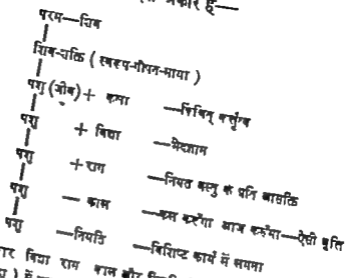 प्रकार हैं—
परम—शिव
शिव-शक्ति ( स्वरूप-गोपन-माया )
पशु (जीव) + कला —किंचित् कर्त्तृत्व
पशु + विद्या —भेदज्ञान
पशु + राग —नियत वस्तु के प्रति आसक्ति
पशु — काल —कल करूँगा आज करूँगा—ऐसी वृत्ति
पशु —नियति —विशिष्ट कार्य में लगना
विद्या राग काल और
) में